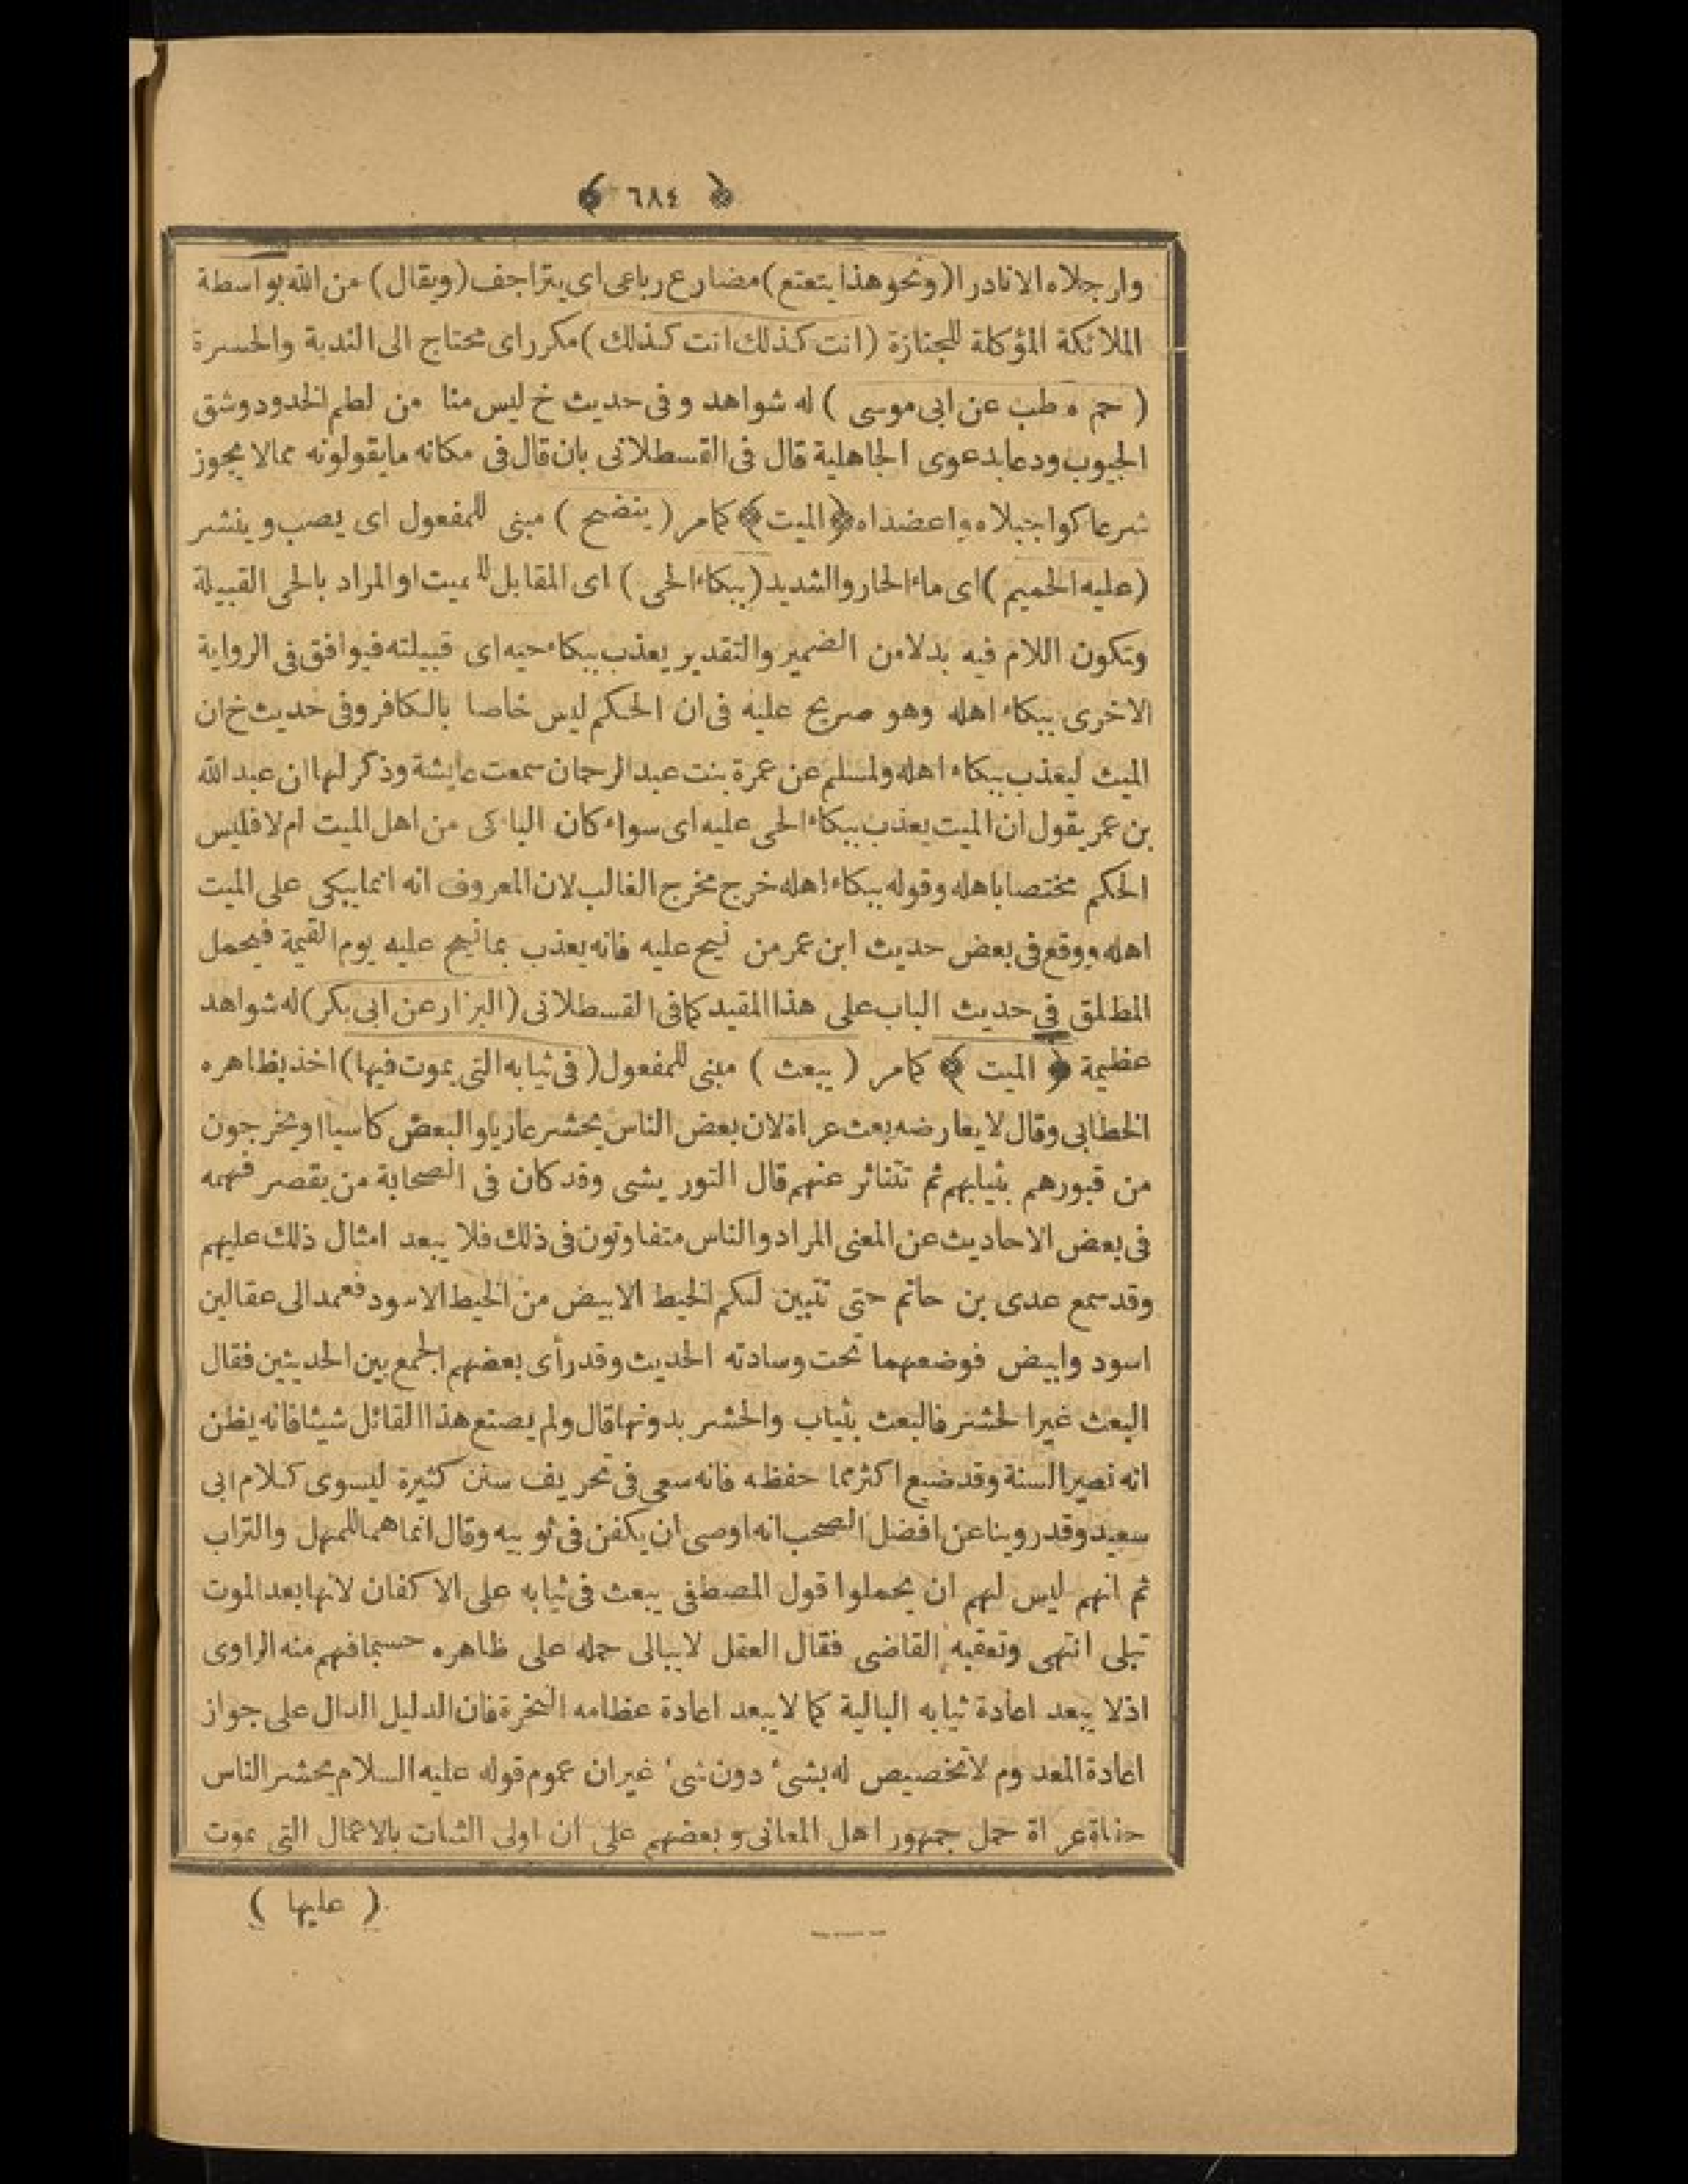 ﴿ ٦٨٤ ﴾
وارجلاه الانادرا (ونحو هذا يتعتع) مضارع رباعى اى يتراجف (ويقال) من الله بواسطة
الملائكة المؤكلة للجنازة (انت كذلك انت كذلك) مكرراى محتاج الى الندبة والحسرة
(حم ه طب عن ابى موسى) له شواهد وفى حديث خ ليس منا من لطم الخدود وشق
الجيوب ودعا بدعوى الجاهلية قال فى القسطلانى بان قال فى مكانه مايقولونه ممالا يجوز
شرعا كواجبلاه واعضداه ﴿الميت﴾ كامر (ينضح) مبنى للمفعول اى يصب وينشر
(عليه الحميم) اى ماء الحار والشديد (ببكاء الحى) اى المقابل للميت او المراد بالحى القبيلة
وتكون اللام فيه بدلا من الضمير والتقدير يعذب ببكاء حيه اى قبيلته فيوافق فى الرواية
الاخرى ببكاء اهله وهو صريح عليه فى ان الحكم ليس خاصا بالكافر وفى حديث خ ان
الميت ليعذب ببكاء اهله ولمسلم عن عمرة بنت عبد الرحمان سمعت عايشة وذكر لها ان عبد الله
بن عمر يقول ان الميت يعذب ببكاء الحى عليه اى سواء كان الباكى من اهل الميت ام لا فليس
الحكم مختصا باهله وقوله ببكاء اهله خرج مخرج الغالب لان المعروف انه انما يبكى على الميت
اهله ووقع فى بعض حديث ابن عمر من نيح عليه فانه يعذب بما نيح عليه يوم القيمة فيحمل
المطلق فى حديث الباب على هذا المقيد كما فى القسطلانى (البزار عن ابى بكر) له شواهد
عظيمة ﴿الميت﴾ كامر (يبعث) مبنى للمفعول (فى ثيابه التى يموت فيها) اخذ بظاهره
الخطابى وقال لا يعارضه بعث عراة لان بعض الناس يحشر عاريا والبعض كاسيا او يخرجون
من قبورهم بثيابهم ثم تتناثر عنهم قال التوريشى وقد كان فى الصحابة من يقصر فهمه
فى بعض الاحاديث عن المعنى المراد والناس متفاوتون فى ذلك فلا يبعد امثال ذلك عليهم
وقد سمع عدى بن حاتم حتى تتبين لكم الخيط الابيض من الخيط الاسود فعمد الى عقالين
اسود وابيض فوضعهما تحت وسادته الحديث وقد رأى بعضهم الجمع بين الحديثين فقال
البعث غير الحشر فالبعث بثياب والحشر بدونها قال ولم يصنع هذا القائل شيئا فانه يظن
انه نصير السنة وقد ضيع اكثر مما حفظه فانه سعى فى تحريف سنن كثيرة ليسوى كلام ابى
سعيد وقد روينا عن افضل الصحب انه اوصى ان يكفن فى ثوبيه وقال انما هما للمهل والتراب
ثم انهم ليس لهم ان يحملوا قول المصطفى يبعث فى ثيابه على الاكفان لانها بعد الموت
تبلى انتهى وتعقبه القاضى فقال العقل لا يبالى حمله على ظاهره حسبما فهم منه الراوى
اذلا يبعد اعادة ثيابه البالية كما لا يبعد اعادة عظامه النخرة فان الدليل الدال على جواز
اعادة المعدوم لا تخصيص له بشئ دون شئ غير ان عموم قوله عليه السلام يحشر الناس
حفاة عراة حمل جمهور اهل المعانى وبعضهم على ان اولى الثياب بالاعمال التى يموت
(عليها)